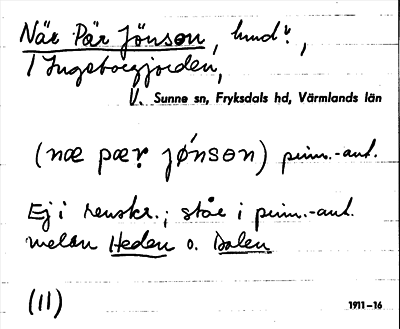 När Pär Jönson, hmd?,
I Ingeborgjorden,
V. Sunne sn, Fryksdals hd, Värmlands län
(næ pæṛ jǿnsɘn) prim.-ant.
Ej i renskr.; står i prim.-ant.
mellan Heden o. Dalen
(11)
1911–16